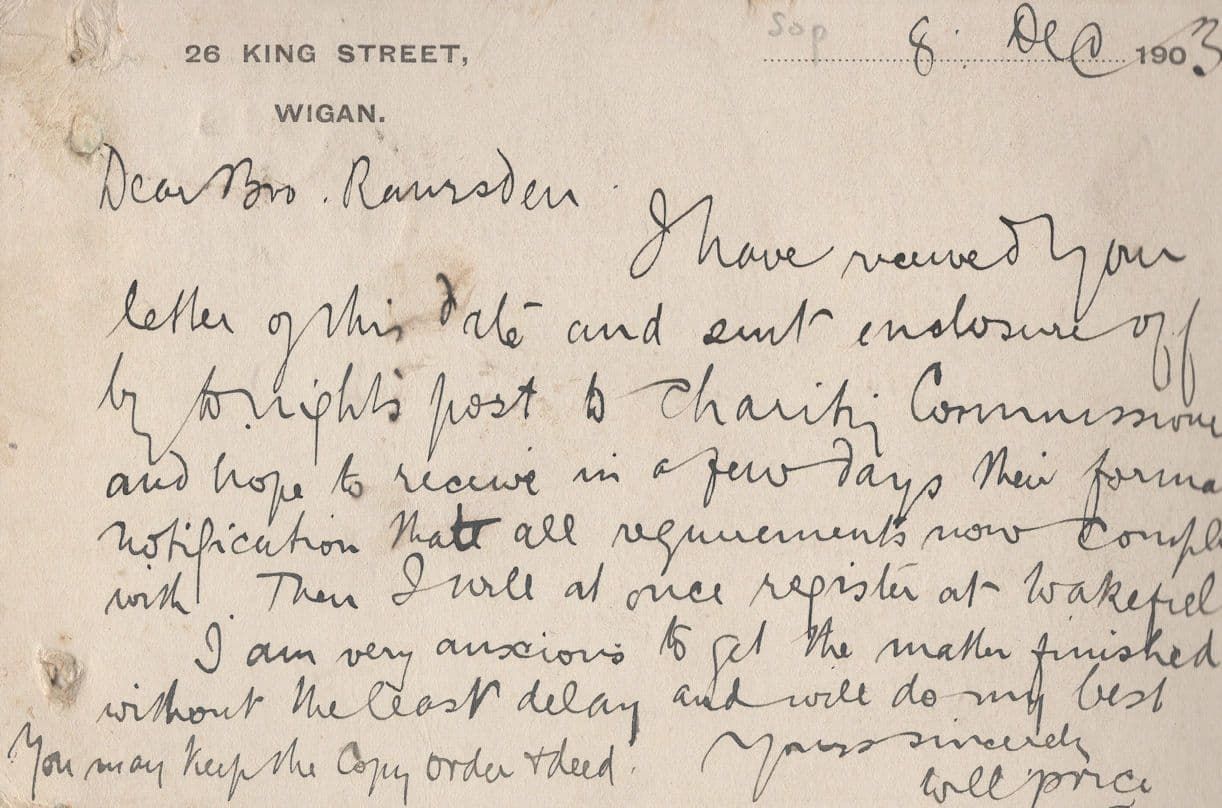 Sop 8. Dec 1903
26 KING STREET,
WIGAN.
Dear Bro. Ramsden
I have received your
letter of this date and sent enclosure off
by tonight's post to Charity Commissione
and hope to receive in a few days their forma
notification that all requirements now compl
with. Then I will at once register at Wakefiel
I am very anxious to get the matter finished
without the least delay and will do my best
You may keep the Copy order & deed.
Yours sincerely
Will Price